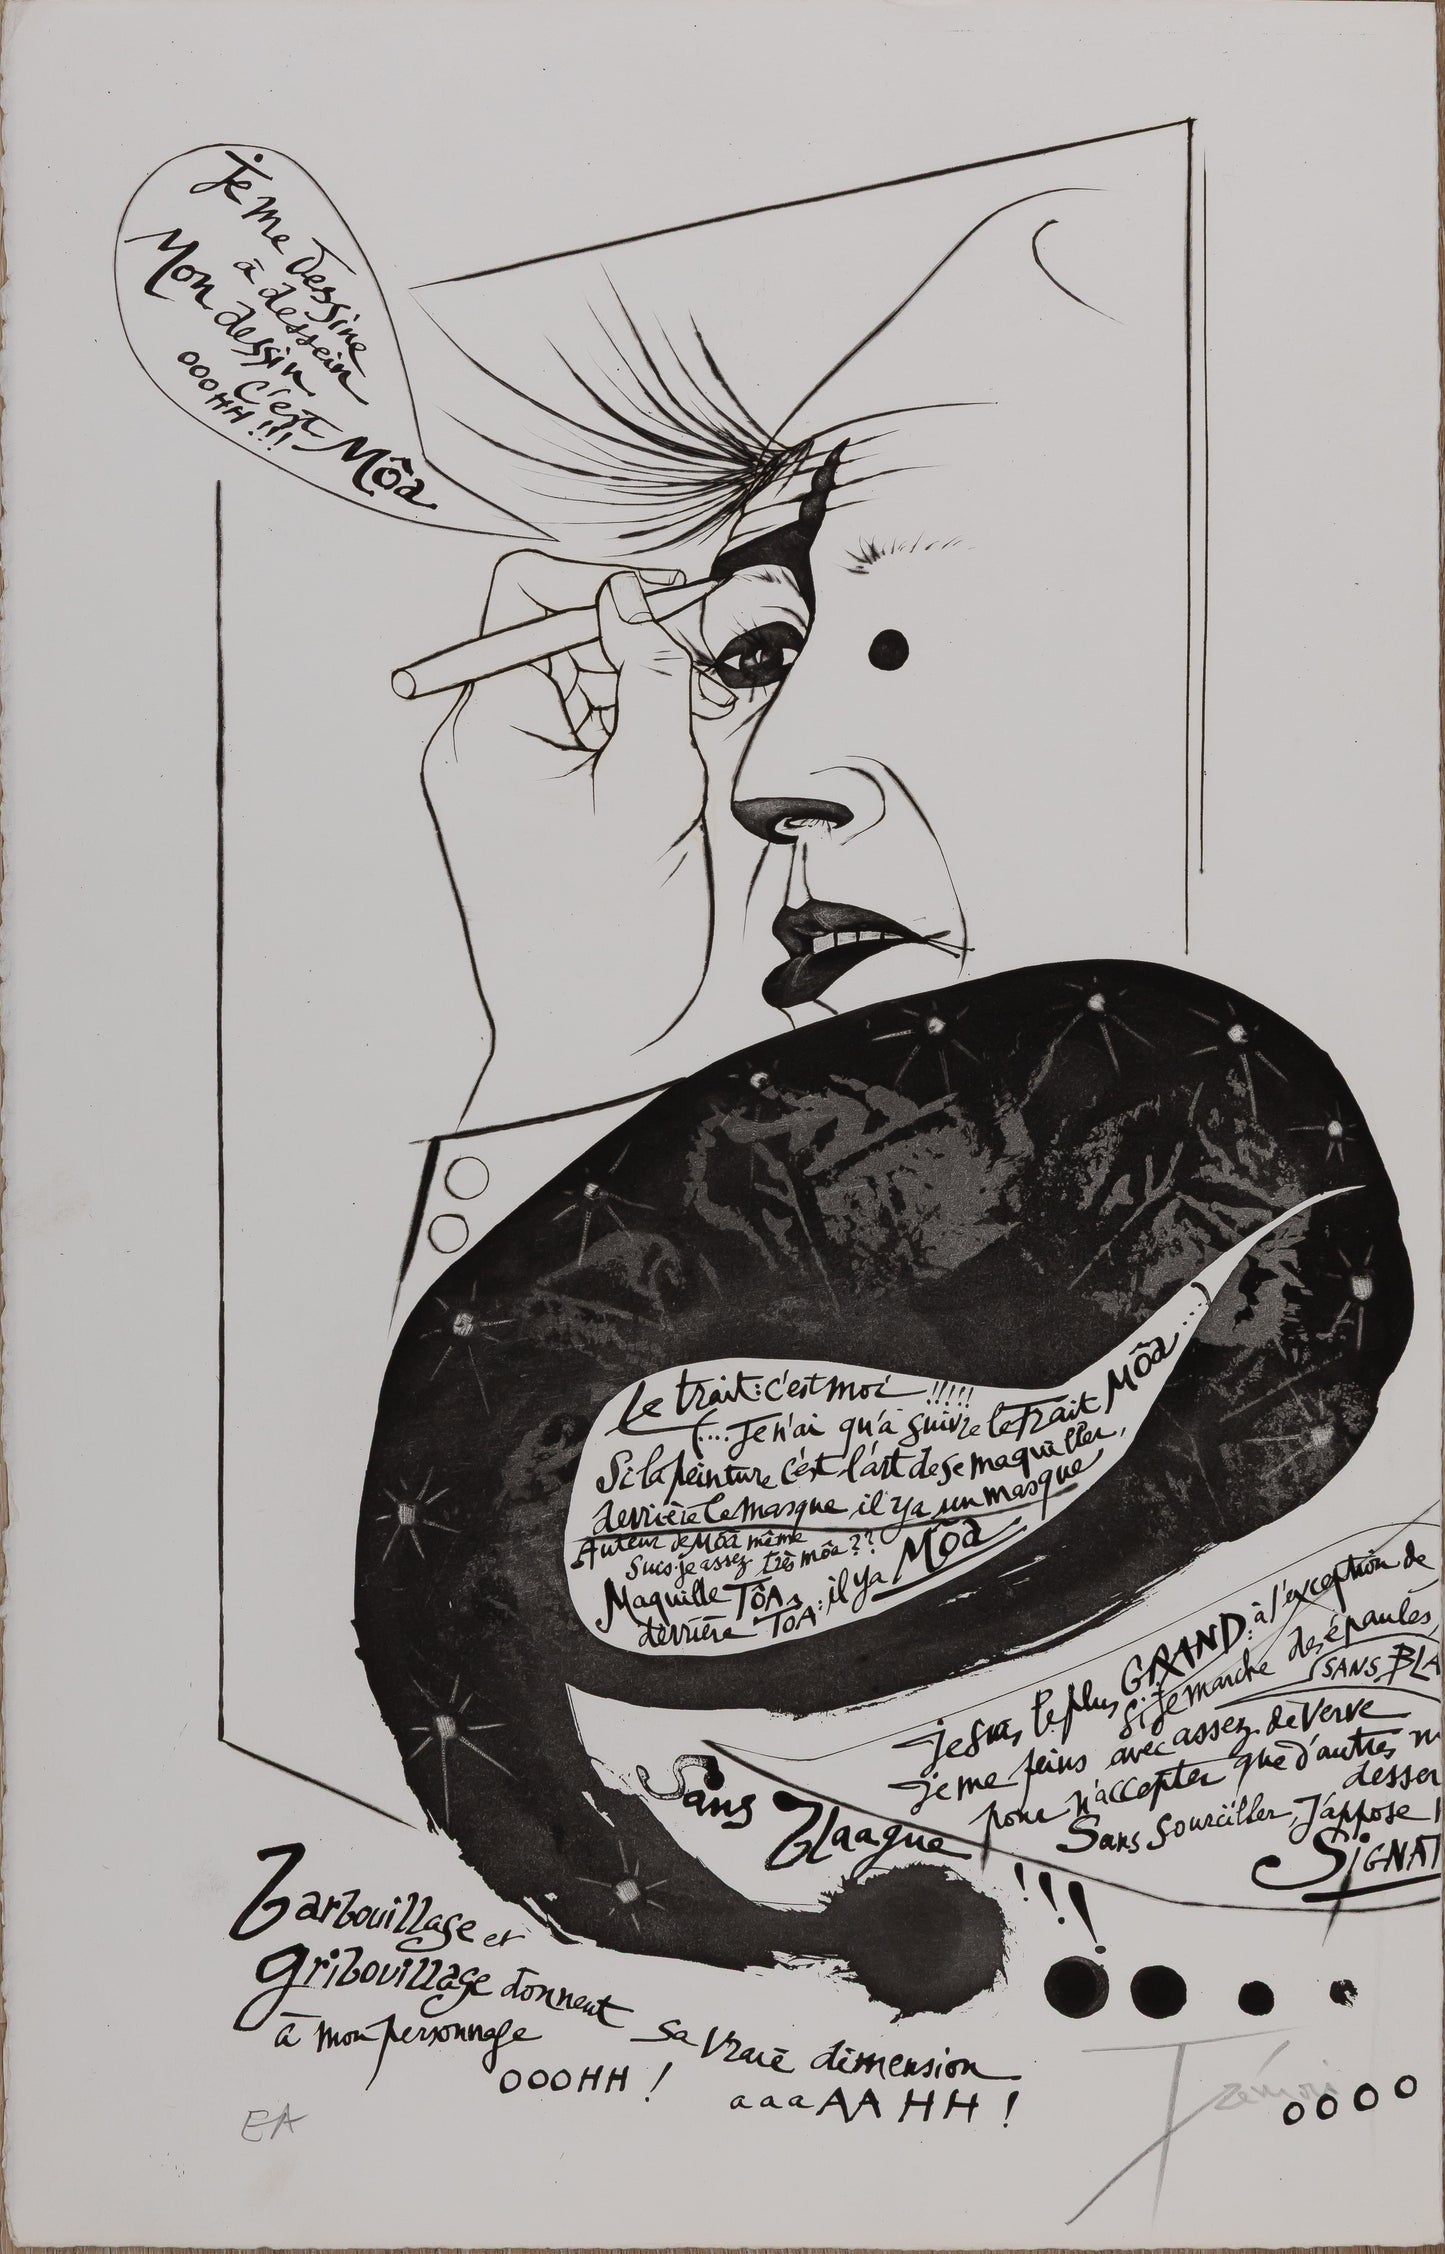 je me dessine
à dessein
Mon dessin
c'est Môa
OOOHH!!!
Le trait: c'est moi !!!!!
(.... Je n'ai qu'à suivre le trait Môa...
Si la peinture c'est l'art de se maquiller,
derrière le masque il y a un masque
Auteur de Môa même
Suis-je assez très môa??
Maquille TÔA,
derrière TOA: il y a Môa
Je suis le plus GRAND: à l'exception de
si je marche des épaules,
(SANS BLA
je me peins avec assez de verve
pour n'accepter que d'autres
desser
Sans sourciller, j'appose
SIGNAT
Sans blaague !!!
barbouillage et
gribouillage donnent
à mon personnage sa vraie dimension
OOOHH! aaaAAHH!
EA
Trémois
oooo